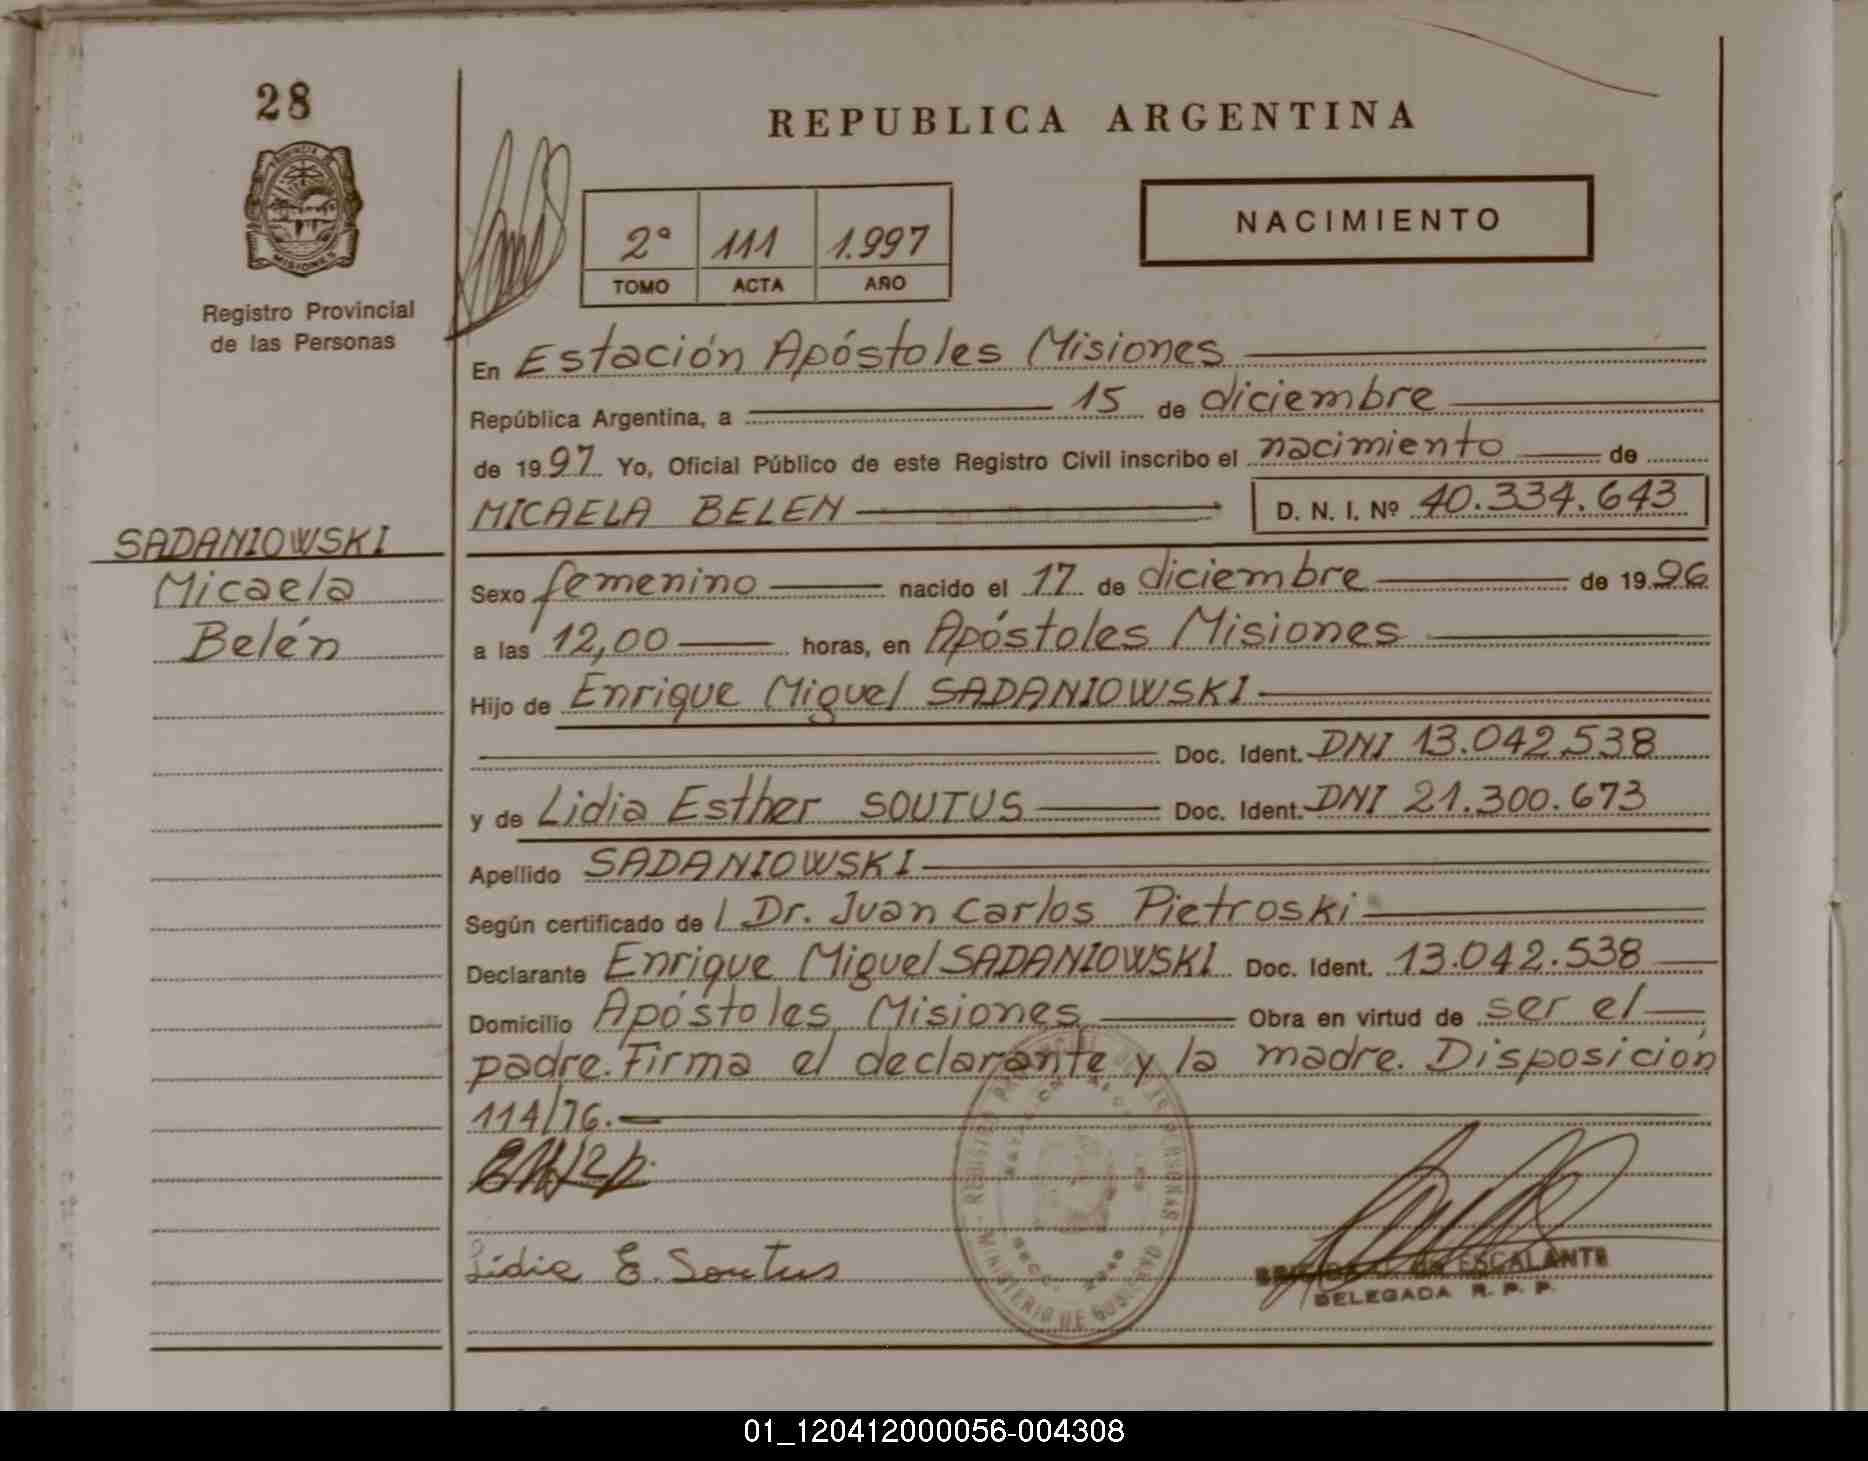 28
REPUBLICA ARGENTINA
PROVINCIA DE
MISIONES
Registro Provincial
de las Personas
2° 111 1.997
TOMO ACTA AÑO
NACIMIENTO
En Estación Apóstoles Misiones
República Argentina, a 15 de diciembre
de 1997 Yo, Oficial Público de este Registro Civil inscribo el nacimiento de
MICAELA BELEN D. N. I. Nº 40.334.643
SADANIOWSKI
Micaela
Belén
Sexo femenino nacido el 17 de diciembre de 1996
a las 12,00 horas, en Apóstoles Misiones
Hijo de Enrique Miguel SADANIOWSKI
Doc. Ident. DNI 13.042.538
y de Lidia Esther SOUTUS Doc. Ident. DNI 21.300.673
Apellido SADANIOWSKI
Según certificado de l Dr. Juan Carlos Pietroski
Declarante Enrique Miguel SADANIOWSKI Doc. Ident. 13.042.538
Domicilio Apóstoles Misiones Obra en virtud de ser el
padre. Firma el declarante y la madre. Disposición
114/76.
Lidia E. Soutus
REGISTRO PROVINCIAL DE LAS PERSONAS
MINISTERIO DE GOBIERNO
DE ESCALANTE
DELEGADA R. P. P.
01_120412000056-004308